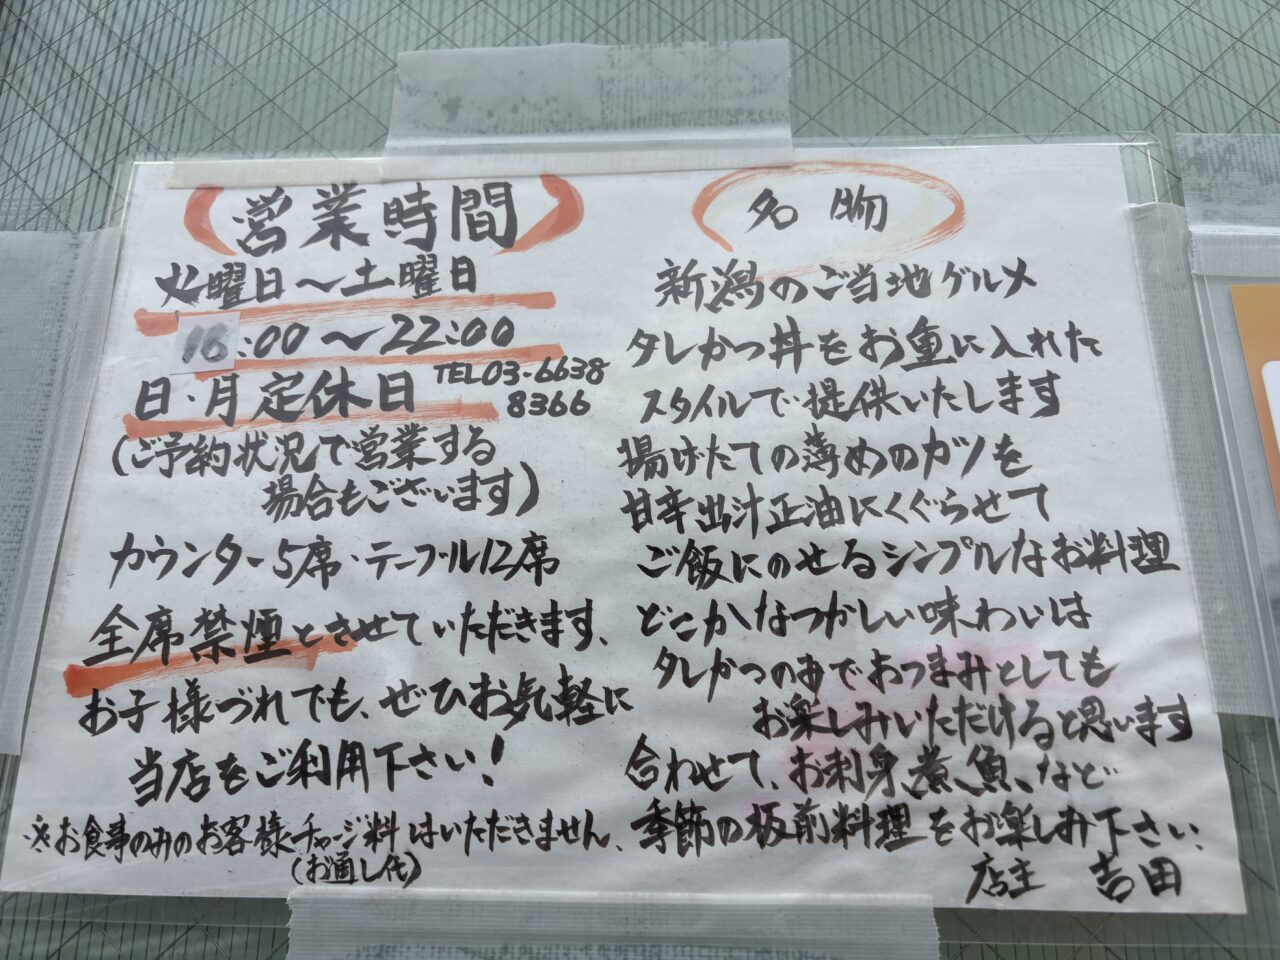 営業時間
火曜日～土曜日
16:00～22:00
日・月定休日
TEL03-6638
8366
(ご予約状況で営業する
場合もございます)
カウンター5席・テーブル12席
全席禁煙とさせていただきます、
お子様づれでも、ぜひお気軽に
当店をご利用下さい!
※お食事のみのお客様チャージ料はいただきません、
(お通し代)
名物
新潟のご当地グルメ
タレかつ丼をお重に入れた
スタイルで提供いたします
揚げたての薄めのカツを
甘辛出汁正油にくぐらせて
ご飯にのせるシンプルなお料理
どこかなつかしい味わいは
タレかつのみでおつまみとしても
お楽しみいただけると思います
合わせて、お刺身、煮魚、など
季節の板前料理をお楽しみ下さい、
店主 吉田